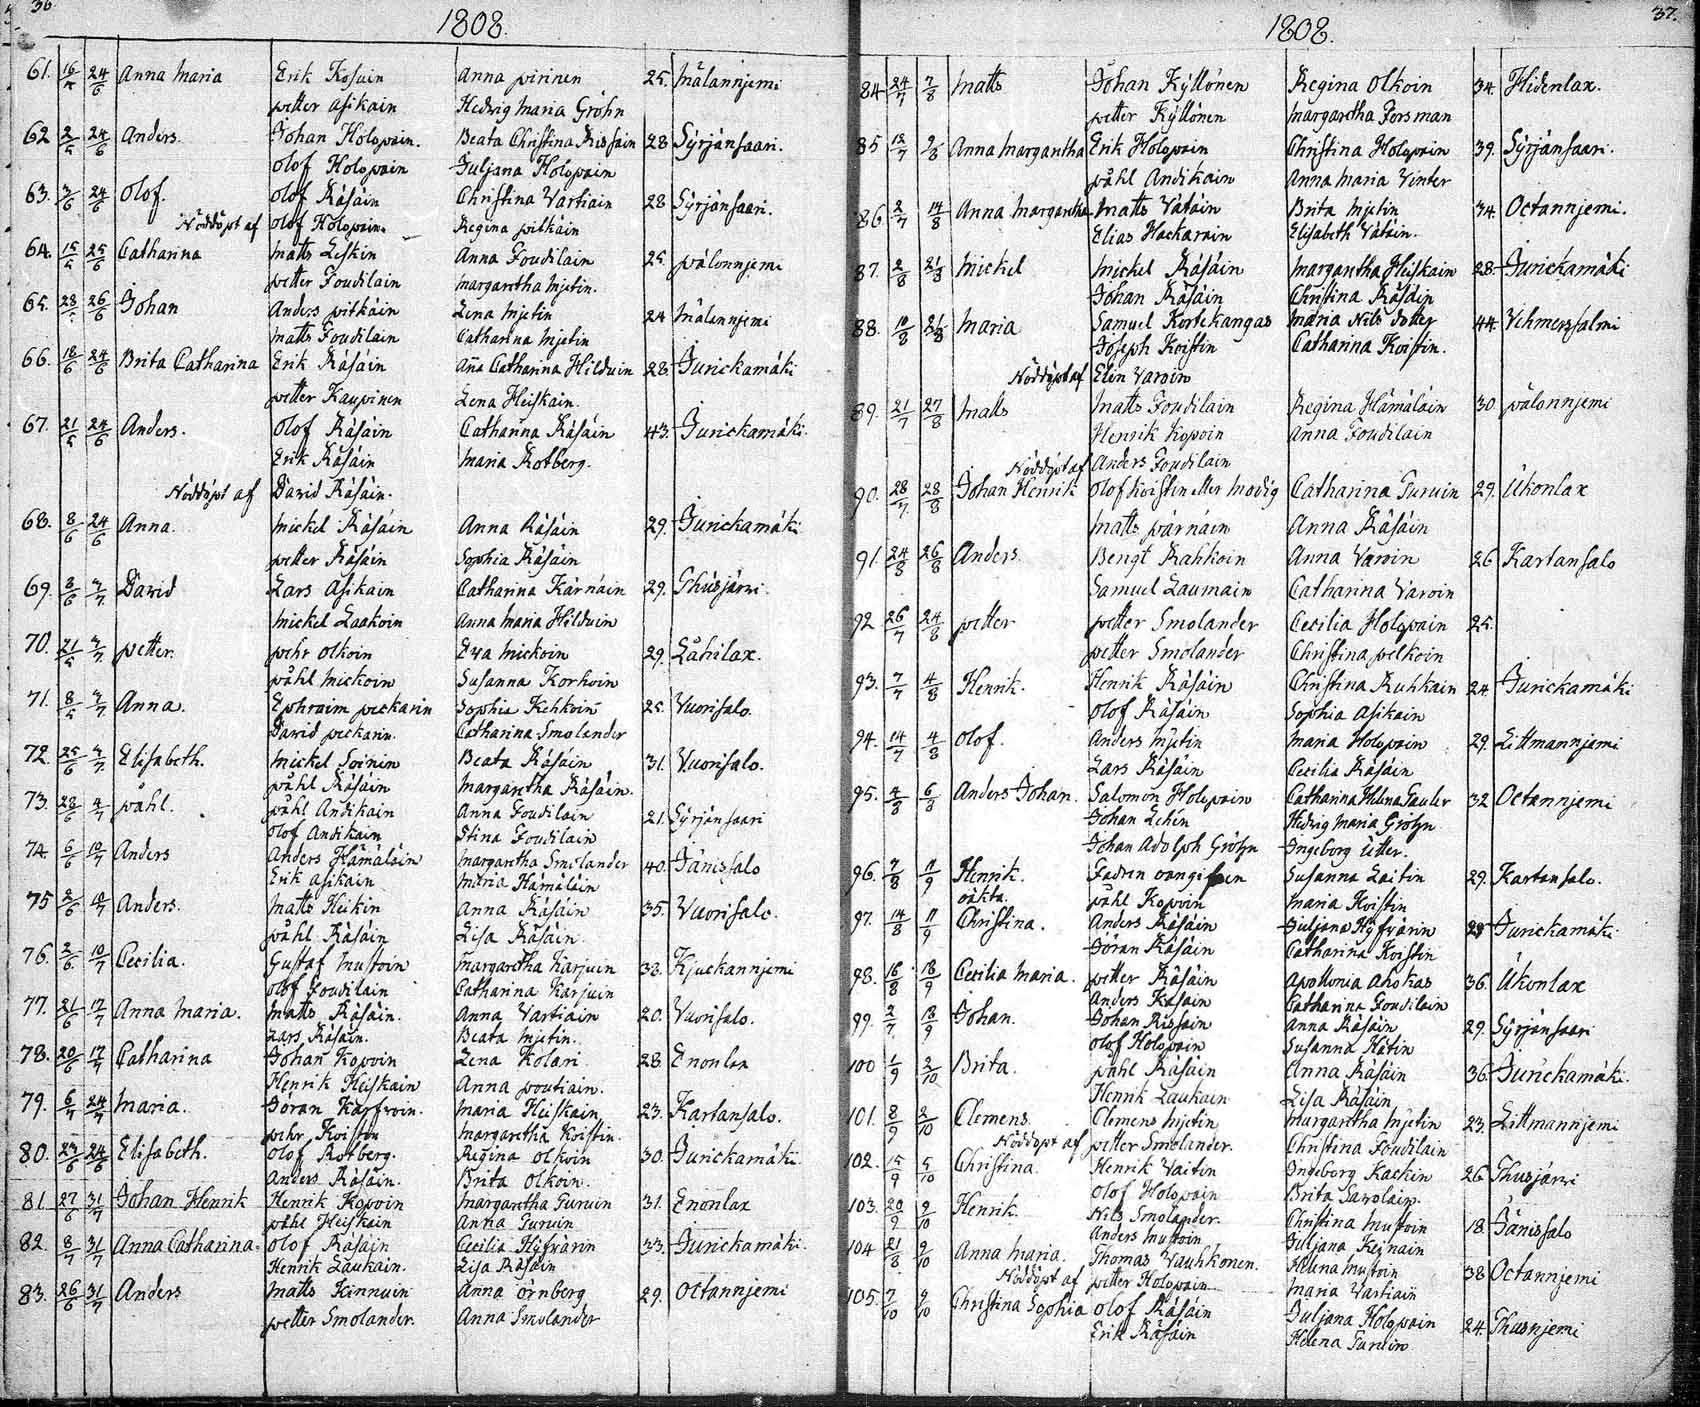 36
1808.
61. 16/4 24/6 Anna Maria Erik Kosuin Anna pirinen 25. Mälannjemi
petter Asikain Hedvig Maria Gröhn
62 2/5 24/6 Anders. Johan Holopain. Beata Christina Rissain 28 Syrjänsaari.
Olof Holopain Juljana Holopain
63. 3/6 24/6 Olof. Olof Räsäin Christina Vartiain 28 Syrjänsaari.
Nöddöpt af Olof Holopain. Regina pitkäin
64. 15/5 25/6 Catharina Matts Leskin Anna Toudilain 25. pälonnjemi
petter Toudilain Margaretha Mjetin.
65. 28/5 26/6 Johan Anders pitkäin Lena Mjetin 24 Mälannjemi
Matts Toudilain Catharina Mjetin
66. 18/6 24/6 Brita Catharina Erik Räsäin Aña Catharina Hilduin 28. Jurickamäki
petter Kaupinen Lena Heiskain.
67. 21/5 24/6 Anders. Olof Räsäin Catharina Räsäin 43. Jurickamäki.
Erik Räsäin Maria Rotberg.
Nöddöpt af David Räsäin.
68. 8/6 24/6 Anna. Mickel Räsäin Anna Räsäin 29. Jurickamäki
petter Räsäin Sophia Räsäin
69. 8/6 3/7 David Lars Asikain Catharina Kärnäin 29. Thusjärvi.
Mickel Laakoin Anna Maria Hilduin
70. 21/5 3/7 petter. pehr Olkoin Eva Mickoin 29. Lätilax.
påhl Mickoin Susanna Korhoin
71. 8/5 3/7 Anna. Ephraim peckarin Sophia Kehkoin 25. Vuorisalo.
David peckarin. Catharina Smolander
72. 25/6 3/7 Elisabeth. Mickel Soinin Beata Räsäin 31. Vuorisalo.
påhl Räsäin Margaretha Räsäin.
73. 28/6 4/7 påhl. påhl Andikain Anna Toudilain 21. Syrjänsaari
Olof Andikain Stina Toudilain
74 6/6 10/7 Anders Anders Hämäläin Margaretha Smolander 40. Jänissalo
Erik Asikain Maria Hämäläin
75 2/6 10/7 Anders. Matts Heikin Anna Räsäin 35. Vuorisalo.
påhl Räsäin Lisa Räsäin.
76. 2/6 10/7 Cecilia. Gustaf Mustoin Margaretha Karjuin 38. Kjuckannjemi
Olof Toudilain Catharina Karjuin
77. 21/6 17/7 Anna Maria. Matts Räsäin. Anna Vartiain 20. Vuorisalo.
Lars Räsäin. Beata Mjetin.
78. 20/6 17/7 Catharina Johan Kopoin Lena Kolari 28. Enonlax
Henrik Heiskain Anna poutiain.
79. 6/7 24/7 Maria. Jöran Karfvoin. Maria Heiskain 23. Kartansalo.
pehr Koistin Margaretha Koistin.
80. 23/6 24/6 Elisabeth. Olof Rotberg. Regina Olkoin 30. Jurickamäki.
Anders Räsäin. Brita Olkoin.
81. 27/6 31/7 Johan Henrik Henrik Kopoin Margaretha Turuin 31. Enonlax
påhl Heiskain Anna Turuin
82. 8/7 31/7 Anna Catharina. Olof Räsäin Cecilia Hyfvärin 33. Jurickamäki.
Henrik Laukain. Lisa Räsäin
83. 26/6 31/7 Anders Matts Kinnuin Anna Örnberg 29. Octannjemi
petter Smolander. Anna Smolander
37.
1808.
84 24/7 7/8 Matts Johan Kyllönen Regina Olkoin 34. Hidenlax.
petter Kyllönen Margaretha Forsman
85 12/7 9/8 Anna Margaretha Erik Holopain Christina Holopain 39. Syrjänsaari.
påhl Andikain Anna Maria Vinter
86. 2/7 14/8 Anna Margaretha Matts Vätäin Brita Mjetin 34. Octannjemi.
Elias Hackarain Elisabeth Vätäin.
87. 2/8 21/8 Mickel Mickel Räsäin Margaretha Heiskain 28. Jurickamäki
Johan Räsäin Christina Räsäin
88. 10/8 21/8 Maria Samuel Kortekangas Maria Nils dotter 44. Vehmerssalmi
Joseph Koistin Catharina Koistin.
Nöddöpt af Elin Varoin
89. 21/7 27/8 Matts Matts Toudilain Regina Hämäläin 30. pälonnjemi
Henrik Kopoin Anna Toudilain
Nöddöpt af Anders Toudilain
90. 28/7 28/8 Johan Henrik Olof Koistin eller Modig Catharina Turuin 29. Ukonlax
Matts pärnäin Anna Räsäin
91. 24/8 26/8 Anders. Bengt Rahkoin Anna Varoin 26 Kartansalo
Samuel Laumain Catharina Varoin
92 26/7 24/8 petter petter Smolander Cecilia Holopain 25.
petter Smolander Christina pelkoin
93. 7/7 4/8 Henrik. Henrik Räsäin Christina Ruhkain 24. Jurickamäki
Olof Räsäin Sophia Asikain
94. 14/7 4/8 Olof. Anders Mjetin Maria Holopain 29. Littmannjemi
Lars Räsäin Cecilia Räsäin
95. 4/8 6/8 Anders Johan. Salomon Holopain Catharina Helena Tauler 32 Octannjemi
Johan Lehin Hedvig Maria Gröhn
Johan Adolph Gröhn Ingeborg Utter.
96. 7/8 11/9 Henrik. Fadren oangifven Susanna Laitin 29. Kartansalo.
oäkta. påhl Kopoin Maria Koistin
97. 14/8 11/9 Christina. Anders Räsäin Juljana Hyfvärin 29 Jurickamäki.
Jöran Räsäin Catharina Koistin
98. 16/8 18/9 Cecilia Maria. petter Räsäin Apollonia Ahokas 36. Ukonlax
Anders Räsäin Catharina Toudilain
99. 2/7 18/9 Johan. Johan Rissain Anna Räsäin 29. Syrjänsaari
Olof Holopain Susanna Hätin
100 1/9 2/10 Brita. påhl Räsäin Anna Räsäin 36. Jurickamäki.
Henrik Laukain Lisa Räsäin
101. 8/9 2/10 Clemens. Clemens Mjetin Margaretha Mjetin 23. Littmannjemi
Nöddöpt af petter Smolander. Christina Toudilain
102. 15/9 5/10 Christina. Henrik Vaitin Ingeborg Kackin 26 Thusjärvi
Olof Holopain Brita Savolain.
103. 20/9 9/10 Henrik. Nils Smolander. Christina Mustoin 18. Jänissalo
Anders Mustoin Juljana Keinain
104 21/8 9/10 Anna Maria. Thomas Vauhkonen. Helena Mustoin 38 Octannjemi
Nöddöpt af petter Holopain Maria Vartiain
105. 7/10 9/10 Christina Sophia Olof Räsäin Juljana Holopain 24. Thusnjemi
Erik Räsäin Helena Turuin